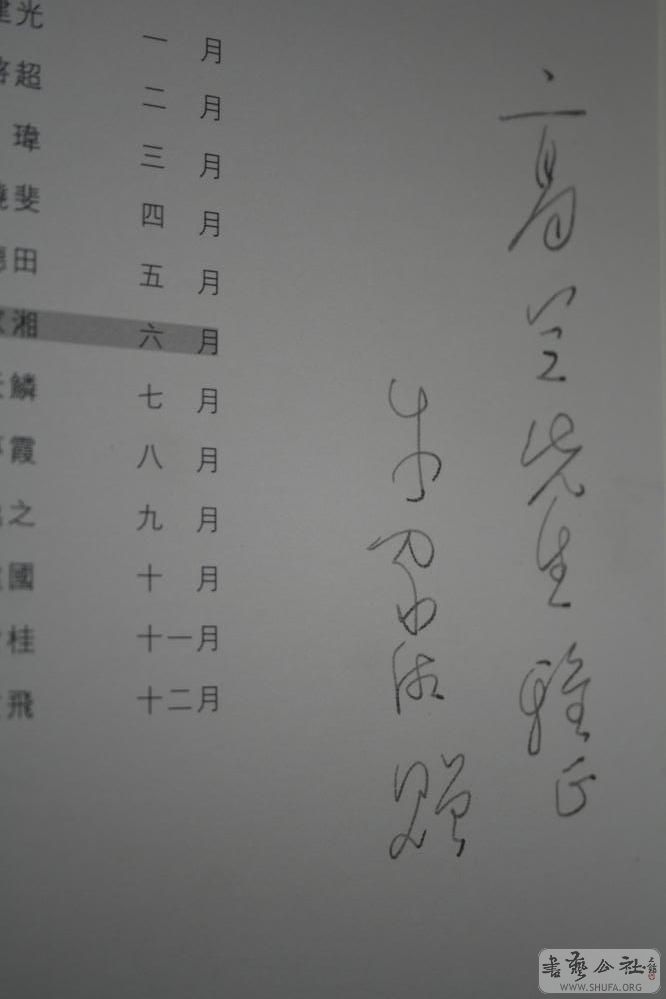 光 一月
超 二月
瑋 三月
斐 四月
田 五月
湘 六月
鱗 七月
霞 八月
之 九月
國 十月
桂 十一月
飛 十二月
高兰先生雅正
朱 赠
書藝公社
WWW.SHUFA.ORG